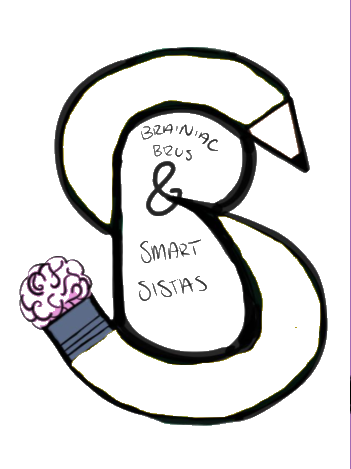 BRAINIAC
BRUS
&
SMART
SISTAS